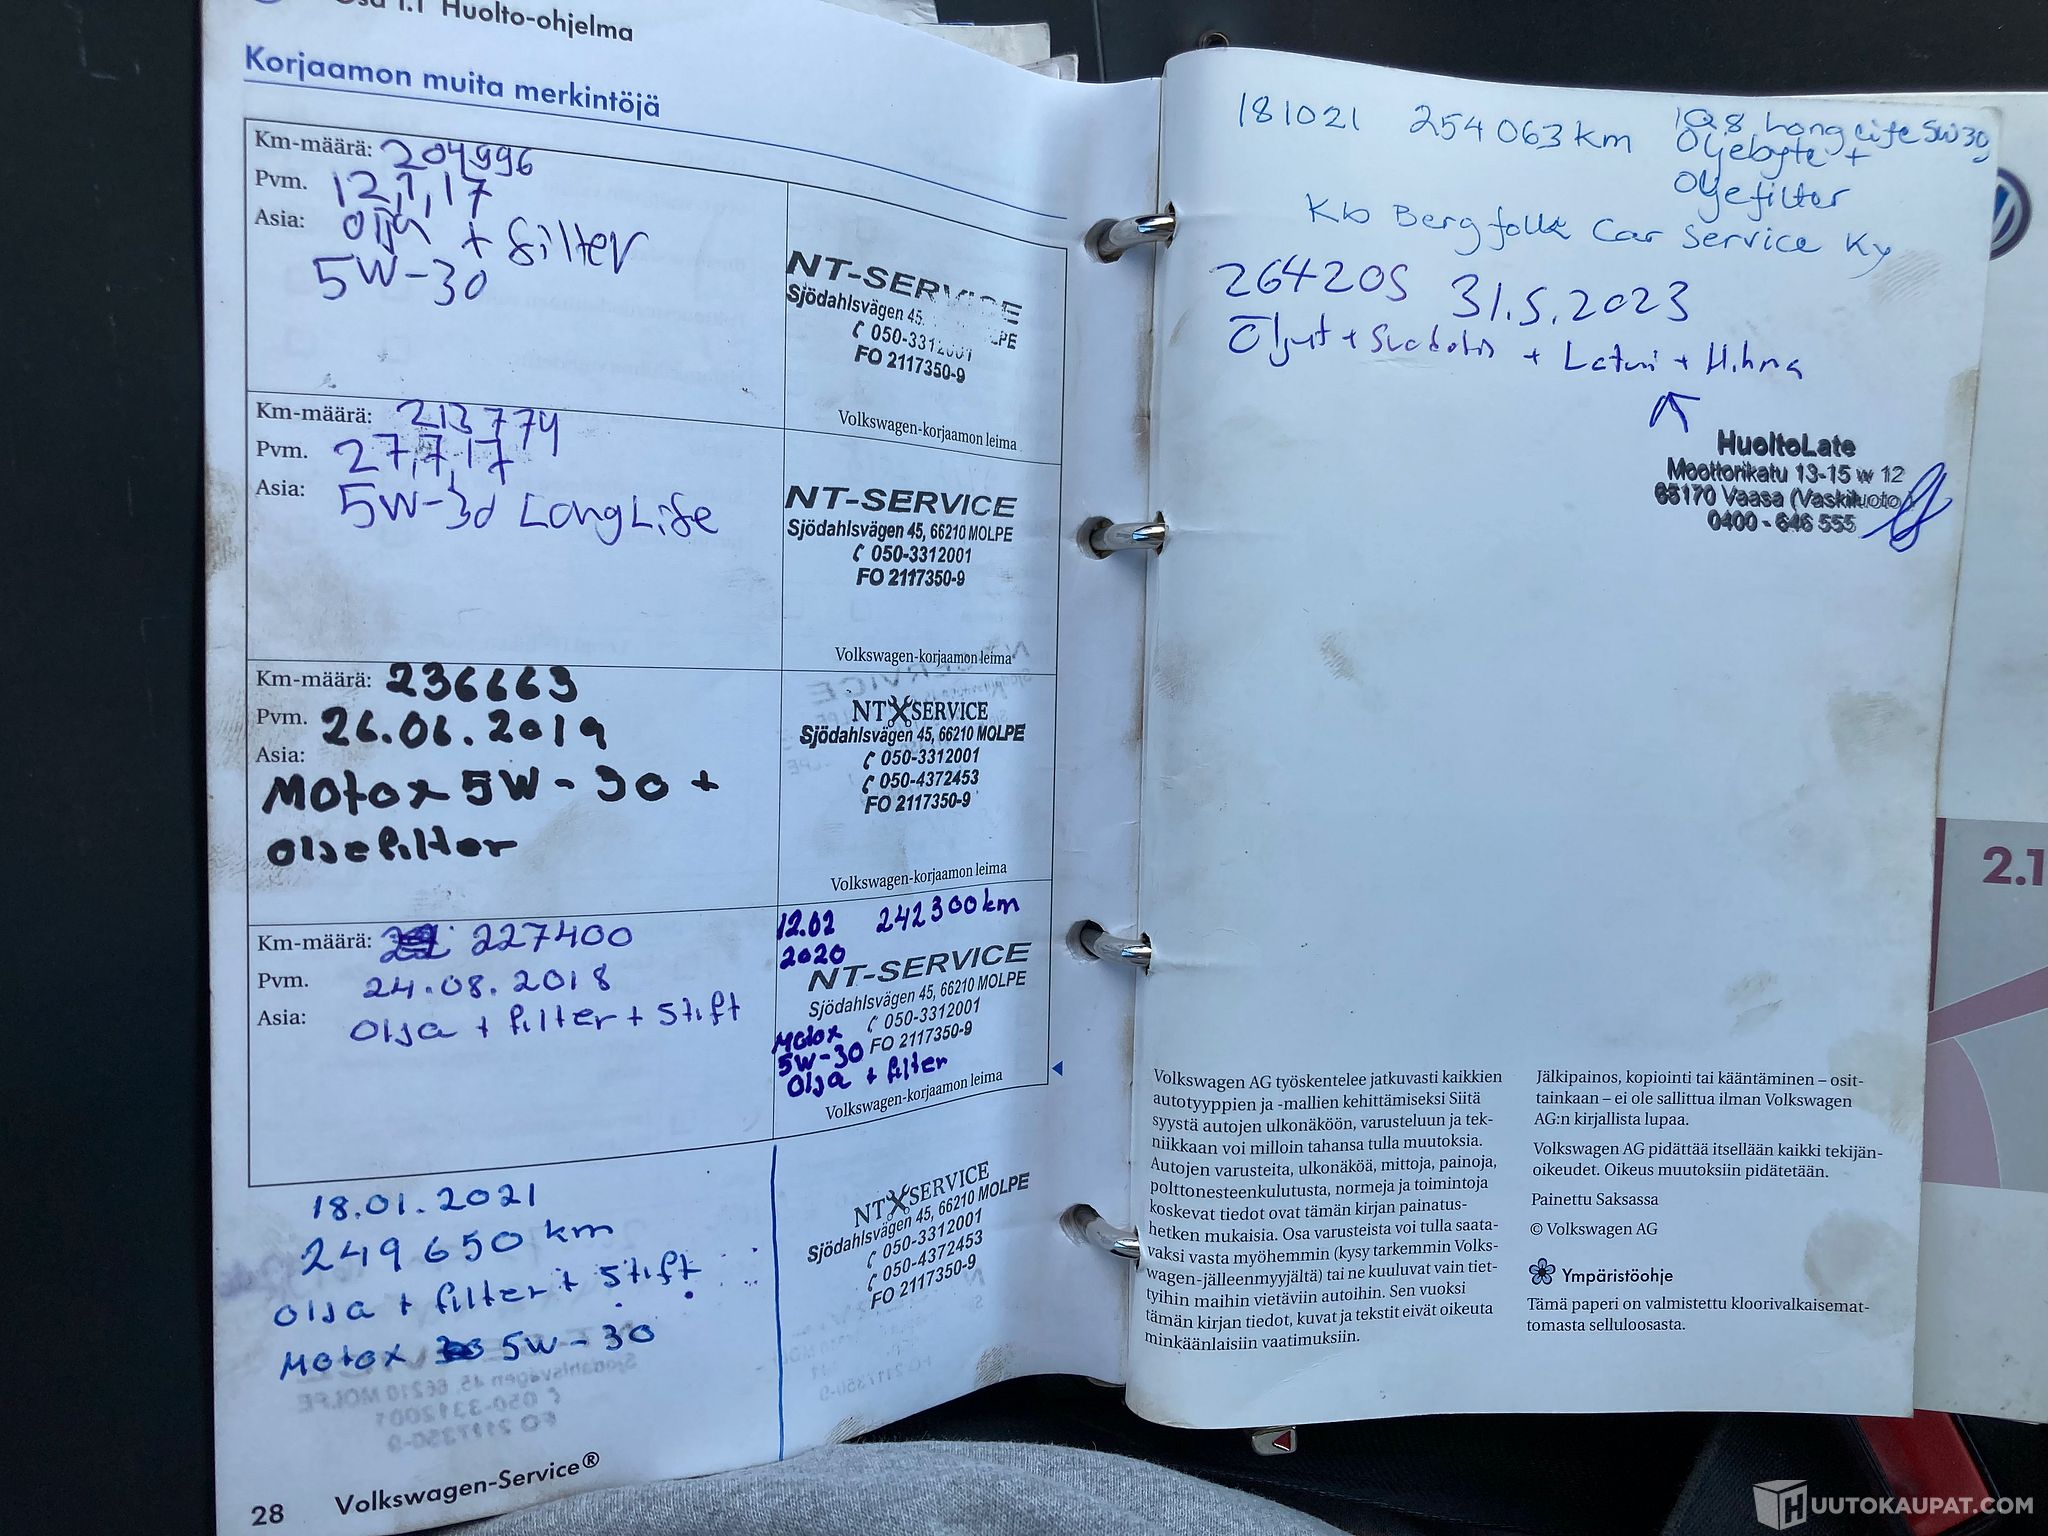 Osa 1.1 Huolto-ohjelma
Korjaamon muita merkintöjä
Km-määrä: 204996
Pvm. 12,1,17
Asia: olja + filter
5W-30
NT-SERVICE
Sjödahlsvägen 45, MOLPE
050-3312001
FO 2117350-9
Volkswagen-korjaamon leima
Km-määrä: 213774
Pvm. 27,7,17
Asia: 5W-30 LongLife
NT-SERVICE
Sjödahlsvägen 45, 66210 MOLPE
050-3312001
FO 2117350-9
Volkswagen-korjaamon leima
Km-määrä: 236663
Pvm. 26.06.2019
Asia:
Motox 5W-30 +
oljefilter
NT SERVICE
Sjödahlsvägen 45, 66210 MOLPE
050-3312001
050-4372453
FO 2117350-9
Volkswagen-korjaamon leima
Km-määrä: 227400
Pvm. 24.08.2018
Asia: Olja + filter + stift
12.02 242300km
2020
NT-SERVICE
Sjödahlsvägen 45, 66210 MOLPE
050-3312001
FO 2117350-9
Motox
5W-30
Olja + filter
Volkswagen-korjaamon leima
18.01.2021
249650 km
Olja + filter + stift
Motox 5W-30
NT SERVICE
Sjödahlsvägen 45, 66210 MOLPE
050-3312001
050-4372453
FO 2117350-9
28 Volkswagen-Service®
181021 254063km Longlife 5W30
Oljebyte +
Oljefilter
Kb Bergfolk Car Service Ky
264205 31.5.2023
Öljyt + Suodatin + Laturi + Hihna
HuoltoLate
Moottorikatu 13-15 w 12
65170 Vaasa (Vaskiluoto)
0400-646 555
2.1
Volkswagen AG työskentelee jatkuvasti kaikkien
autotyyppien ja -mallien kehittämiseksi Siitä
syystä autojen ulkonäköön, varusteluun ja tek-
niikkaan voi milloin tahansa tulla muutoksia.
Autojen varusteita, ulkonäköä, mittoja, painoja,
polttonesteenkulutusta, normeja ja toimintoja
koskevat tiedot ovat tämän kirjan painatus-
hetken mukaisia. Osa varusteista voi tulla saata-
vaksi vasta myöhemmin (kysy tarkemmin Volks-
wagen-jälleenmyyjältä) tai ne kuuluvat vain tiet-
tyihin maihin vietäviin autoihin. Sen vuoksi
tämän kirjan tiedot, kuvat ja tekstit eivät oikeuta
minkäänlaisiin vaatimuksiin.
Jälkipainos, kopiointi tai kääntäminen – osit-
tainkaan – ei ole sallittua ilman Volkswagen
AG:n kirjallista lupaa.
Volkswagen AG pidättää itsellään kaikki tekijän-
oikeudet. Oikeus muutoksiin pidätetään.
Painettu Saksassa
© Volkswagen AG
Ympäristöohje
Tämä paperi on valmistettu kloorivalkaisemat-
tomasta selluloosasta.
HUUTOKAUPAT.COM